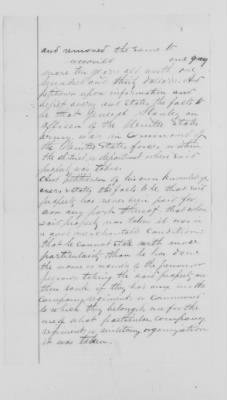 and removed the same to
one gray
mare ten years old worth one
hundred and thirty dollars. And
petitioner upon information and
belief avers and states the facts to
be that General Stanley an
officer of the United States
army was in command of
the United States forces within
the district or department where said
property was taken.
And petitioner of his own knowledge
avers & states the facts to be that said
property has never been paid for
nor any part thereof that when
said property was taken it was in
a good merchantable condition
that he cannot state with more
particularity than he has done
the name or names of the person or
persons taking the said property or
the rank if they had any nor the
company regiment or command
to which they belonged nor for the
use of what particular company
regiment or military organization
it was taken.